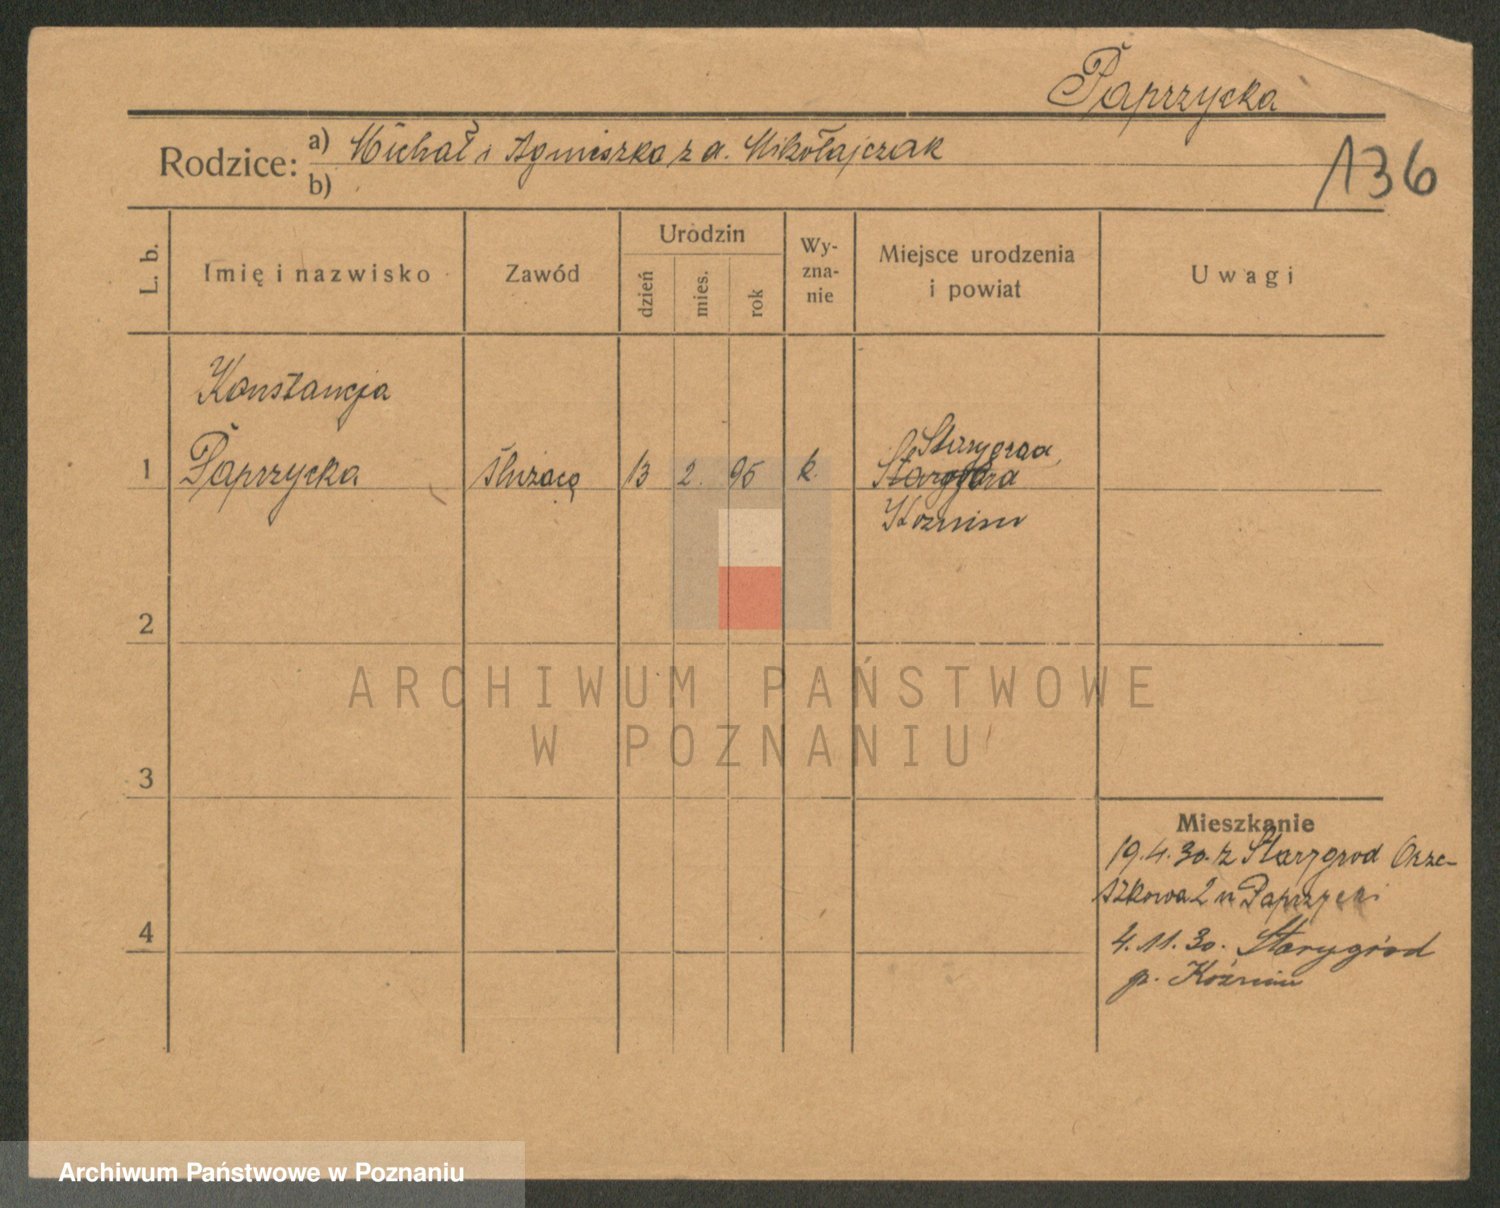 Paprzycka
Rodzice: a) Michał i Agnieszka z d. Mikołajczak
b)
136
L. b.
Imię i nazwisko
Zawód
Urodzin
dzień
mies.
rok
Wy-
zna-
nie
Miejsce urodzenia
i powiat
Uwagi
Konstancja
1 Paprzycka służącą 13 2. 95 k.
Starygród,
Koźmin
2
3
4
Mieszkanie
19.4.30. z Starygrod Orze-
szkowa 2 u Paprzycki
4.11.30. Starygród
p. Koźmin
ARCHIWUM PAŃSTWOWE
W POZNANIU
Archiwum Państwowe w Poznaniu